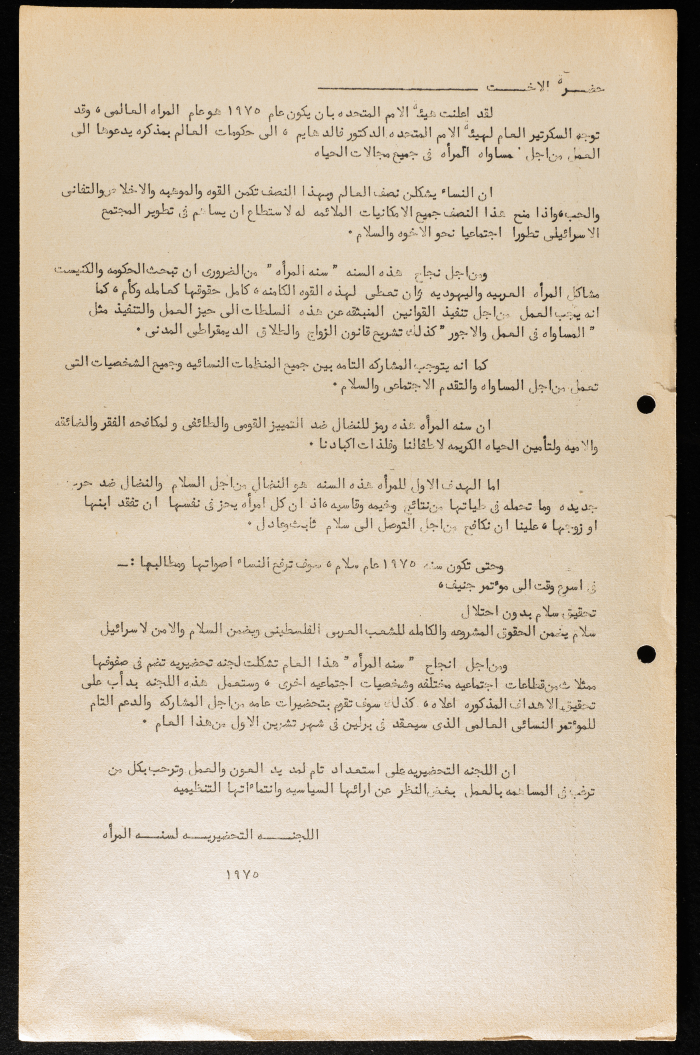 حضـــرة الاخـــت ـــــــــــــــــــــــــ
لقد اعلنت هيئة الامم المتحده بان يكون عام ١٩٧٥ هو عام المراه العالمي ، وقد
توجه السكرتير العام لهيئة الامم المتحده الدكتور فالدهايم ، الى حكومات العالم بمذكره يدعوها الى
العمل من اجل مساواه المرأه في جميع مجالات الحياه
ان النساء يشكلن نصف العالم وبهذا النصف تكمن القوه والموهبه والاخلاص والتفاني
والحب ، واذا منح هذا النصف جميع الامكانيات الملائمه له لاستطاع ان يساهم في تطوير المجتمع
الاسرائيلي تطورا اجتماعيا نحو الاخوه والسلام .
ومن اجل نجاح هذه السنه " سنه المرأه " من الضروري ان تبحث الحكومه والكنيست
مشاكل المرأه العربيه واليهوديه وان تعطى لهذه القوه الكامنه ، كامل حقوقها كعامله وكأم ، كما
انه يجب العمل من اجل تنفيذ القوانين المنبثقه عن هذه السلطات الى حيز العمل والتنفيذ مثل
" المساواه في العمل والاجور " كذلك تشريع قانون الزواج والطلاق الديمقراطي المدني .
كما انه يتوجب المشاركه التامه بين جميع المنظمات النسائيه وجميع الشخصيات التي
تعمل من اجل المساواه والتقدم الاجتماعي والسلام .
ان سنه المرأه هذه رمز للنضال ضد التمييز القومي والطائفي و لمكافحه الفقر والضائقه
والاميه ولتأمين الحياه الكريمه لاطفالنا وفلذات اكبادنا .
اما الهدف الاول للمرأه هذه السنه هو النضال من اجل السلام والنضال ضد حرب
جديده وما تحمله في طياتها من نتائج وخيمه وقاسيه ، اذ ان كل امرأه يحز في نفسها ان تفقد ابنها
او زوجها ، علينا ان نكافح من اجل التوصل الى سلام ثابت وعادل .
وحتى تكون سنه ١٩٧٥ عام سلام ، سوف ترفع النساء اصواتها ومطالبها : ــ
في اسرع وقت الى مؤتمر جنيف ،
تحقيق سلام بدون احتلال
سلام يضمن الحقوق المشروعه والكامله للشعب العربي الفلسطيني ويضمن السلام والامن لاسرائيل
ومن اجل انجاح " سنه المرأه " هذا العام تشكلت لجنه تحضيريه تضم في صفوفها
ممثلات من قطاعات اجتماعيه مختلفه وشخصيات اجتماعيه اخرى ، وستعمل هذه اللجنه بدأب على
تحقيق الاهداف المذكوره اعلاه ، كذلك سوف تقوم بتحضيرات عامه من اجل المشاركه والدعم التام
للمؤتمر النسائي العالمي الذي سيعقد في برلين في شهر تشرين الاول من هذا العام .
ان اللجنه التحضيريه على استعداد تام لمد يد العون والعمل وترحب بكل من
ترغب في المساهمه بالعمل بغض النظر عن ارائها السياسيه وانتماءاتها التنظيميه
اللجنـــه التحضيريـــه لسنـــه المرأه
١٩٧٥